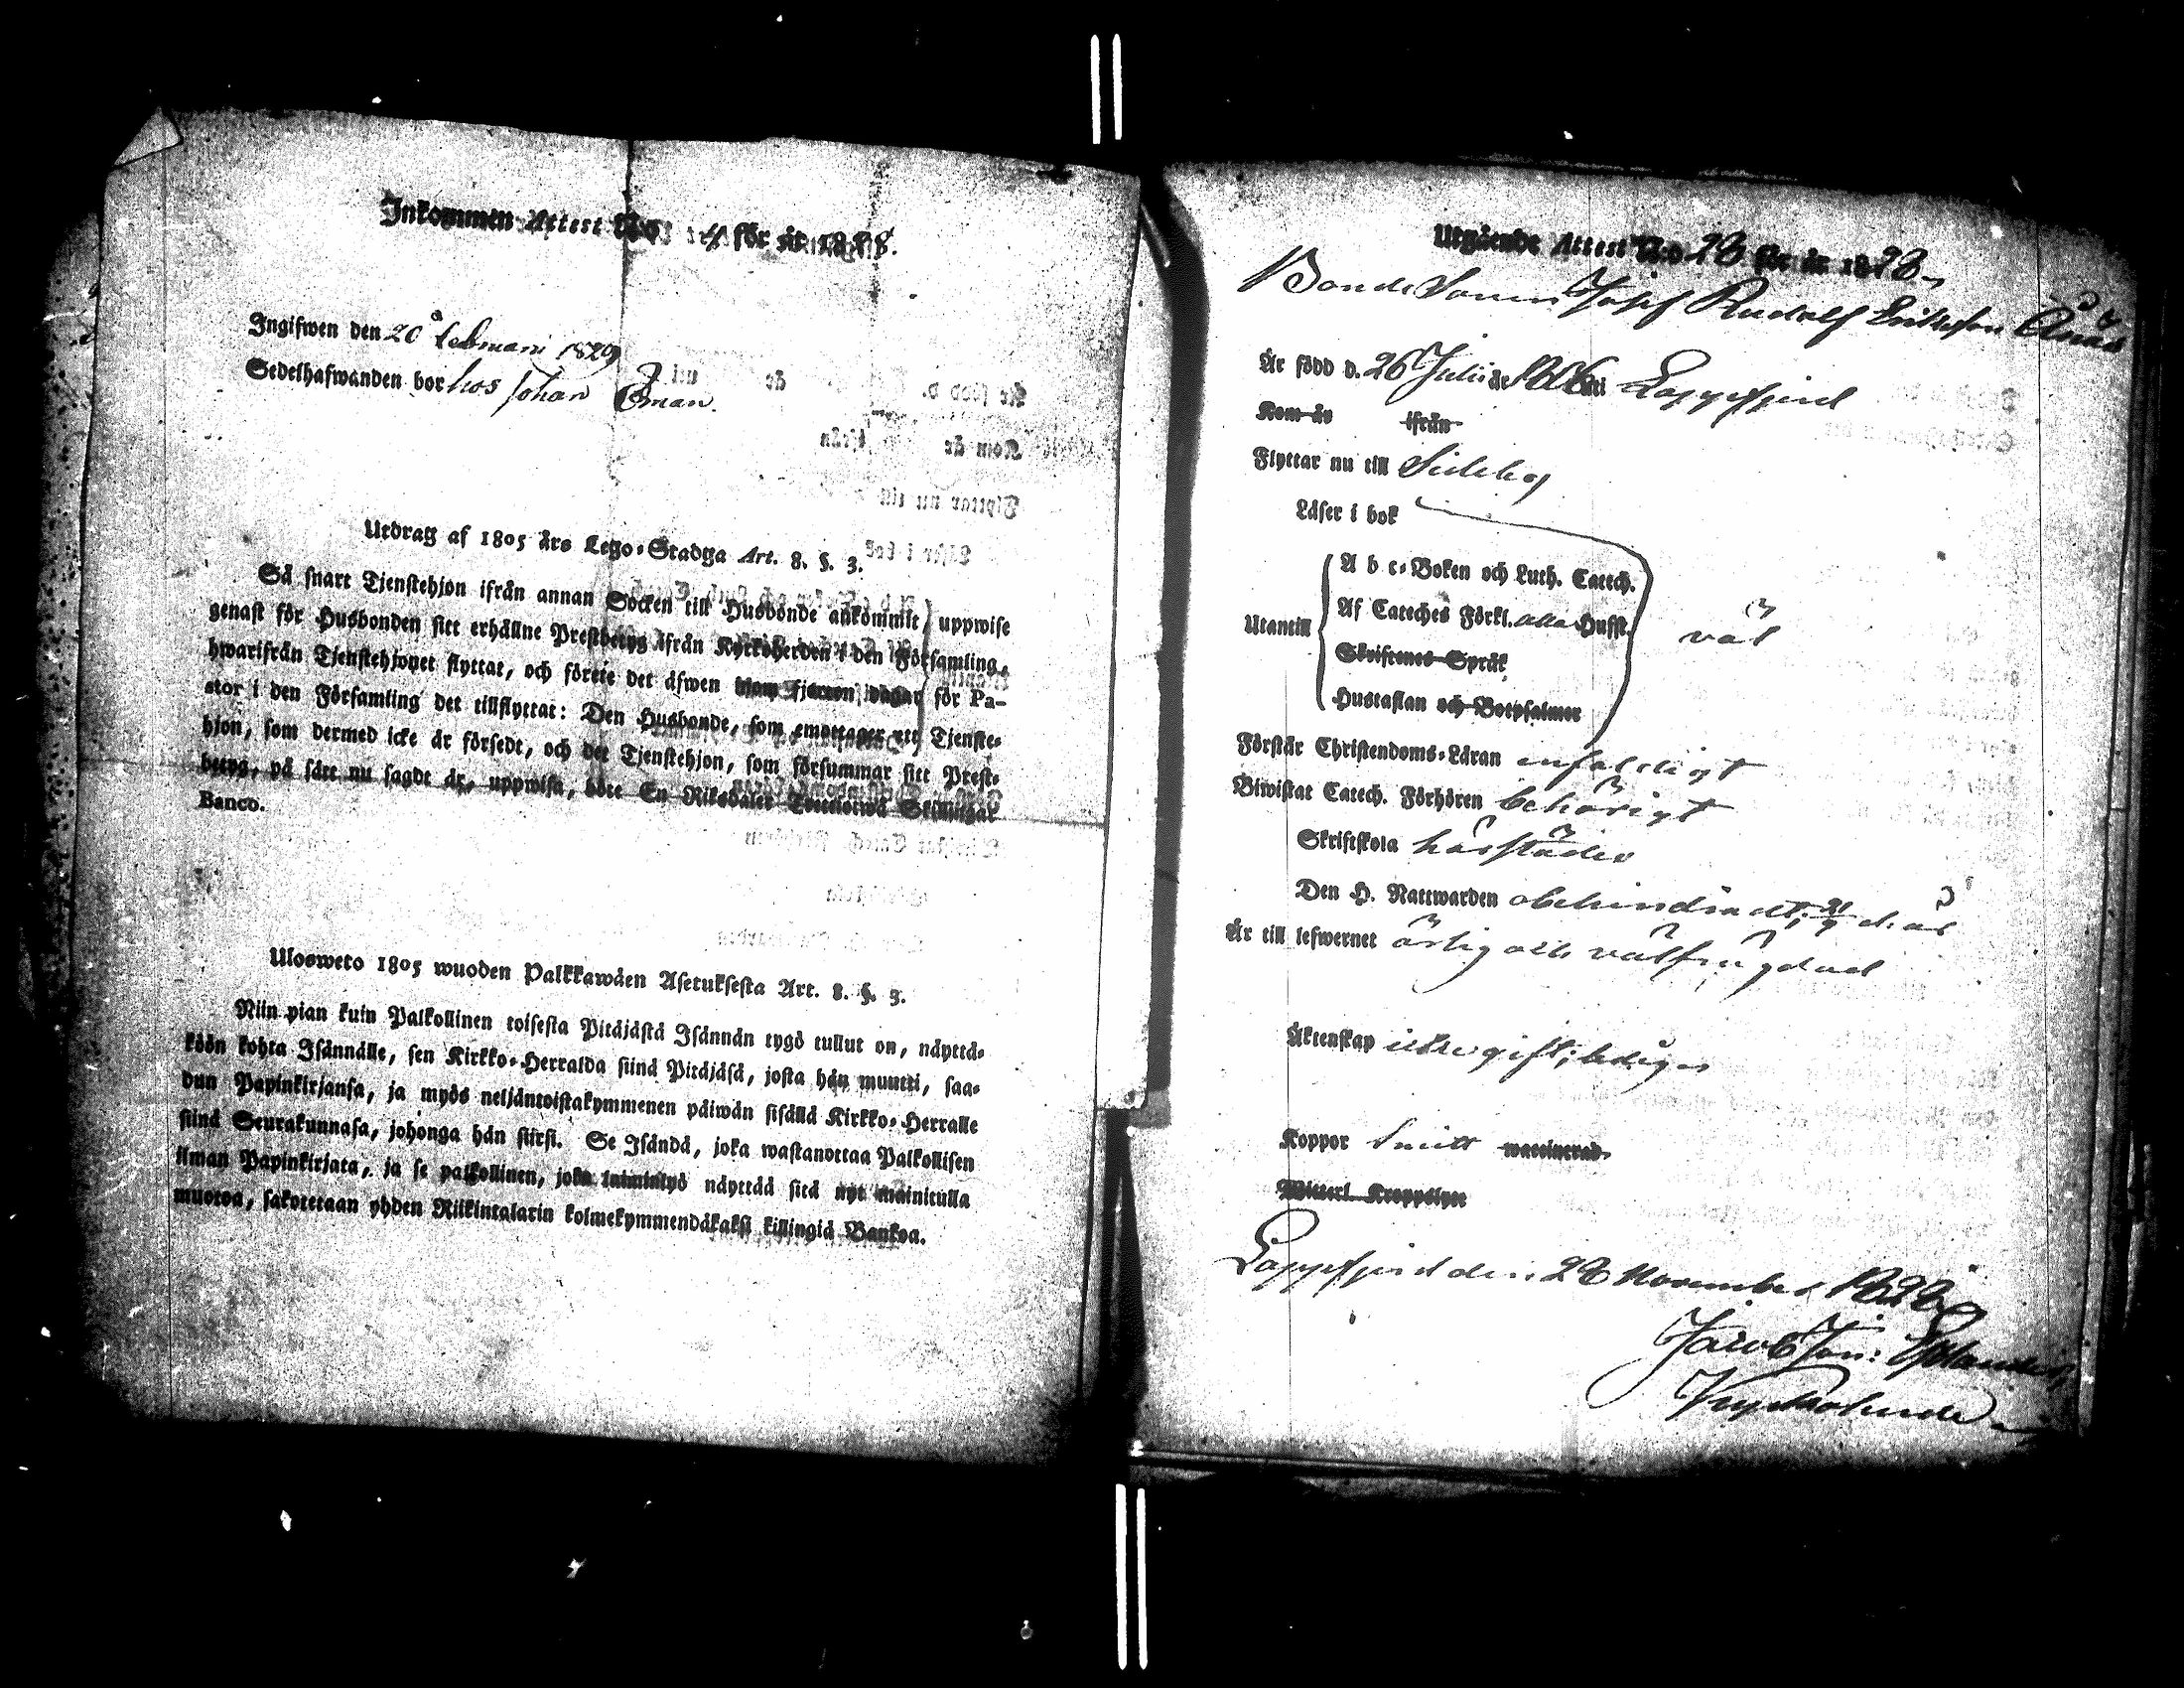 Inkommen Attest N:o 4 för år 1828.
Ingifwen den 20 Februari 1829
Sedelhafwanden bor hos Johan Öman.
Utdrag af 1805 års Lego-Stadga Art. 8. §. 3.
Så snart Tjenstehjon ifrån annan Socken till Husbonde ankommit, uppwise
genast för Husbonden sitt erhållne Prestbetyg ifrån Kyrkoherden i den Församling,
hwarifrån Tjenstehjonet flyttat, och förete det äfwen inom fjorton dagar för Pa-
stor i den Församling det tillflyttat: Den Husbonde, som emottager ett Tjenste-
hjon, som dermed icke är försedt, och det Tjenstehjon, som försummar sitt Prest-
betyg, på sätt nu sagdt är, uppwisa, böte En Riksdaler Trettiotwå Skillingar
Banco.
Ulosweto 1805 wuoden Palkkawäen Asetuksesta Art. 8. §. 3.
Niin pian kuin Palkollinen toisesta Pitäjästä Isännän tygö tullut on, näyttä-
köön kohta Isännälle, sen Kirkko-Herralda siinä Pitäjäsä, josta hän muutti, saa-
dun Papinkirjansa, ja myös neljäntoistakymmenen päiwän sisällä Kirkko-Herralle
siinä Seurakunnasa, johonga hän siirsi. Se Isändä, joka wastanottaa Palkollisen
ilman Papinkirjata, ja se palkollinen, joka laiminlyö näyttää sitä nyt mainitulla
muotoa, sakotetaan yhden Riikintalarin kolmekymmendäkaksi killingiä Bankoa.
Utgående Attest N:o 28 för år 1828
Bonde Sonen Josef Rudolf Eriksson Ånäs
Är född d. 26 Julii år 1806 uti Lappfjerd
Kom år ifrån
Flyttar nu till Sideby
Läser i bok
Utantill
A b c-Boken och Luth. Catech.
Af Cateches Förkl. alla Hufst.
Skriftenes Språk
Hustaflan och Botpsalmer
väl
Förstår Christendoms-Läran enfaldigt
Biwistat Catech. Förhören behörigt
Skriftskola härstädes
Den H. Nattwarden obehindradt, 21/9 d. år
Är till lefwernet ärlig och välfrägdad
Äktenskap icke gift, ledig
Koppor haft waccinerad
Witterl. Kroppslyte
Lappfjerd den 28 November 1828
Jacob Jon: